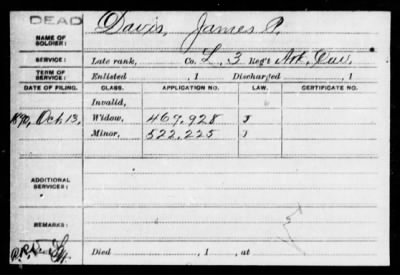 DEAD
NAME OF SOLDIER: Davis, James P.
SERVICE: Late rank, Co. L, 3 Reg't Ark. Cav.
TERM OF SERVICE: Enlisted , 1 Discharged , 1
DATE OF FILING. CLASS. APPLICATION NO. LAW. CERTIFICATE NO.
Invalid,
Oct. 13, Widow, 467,928 J
Minor, 522,225 J
ADDITIONAL SERVICES:
REMARKS:
Died , 1 , at